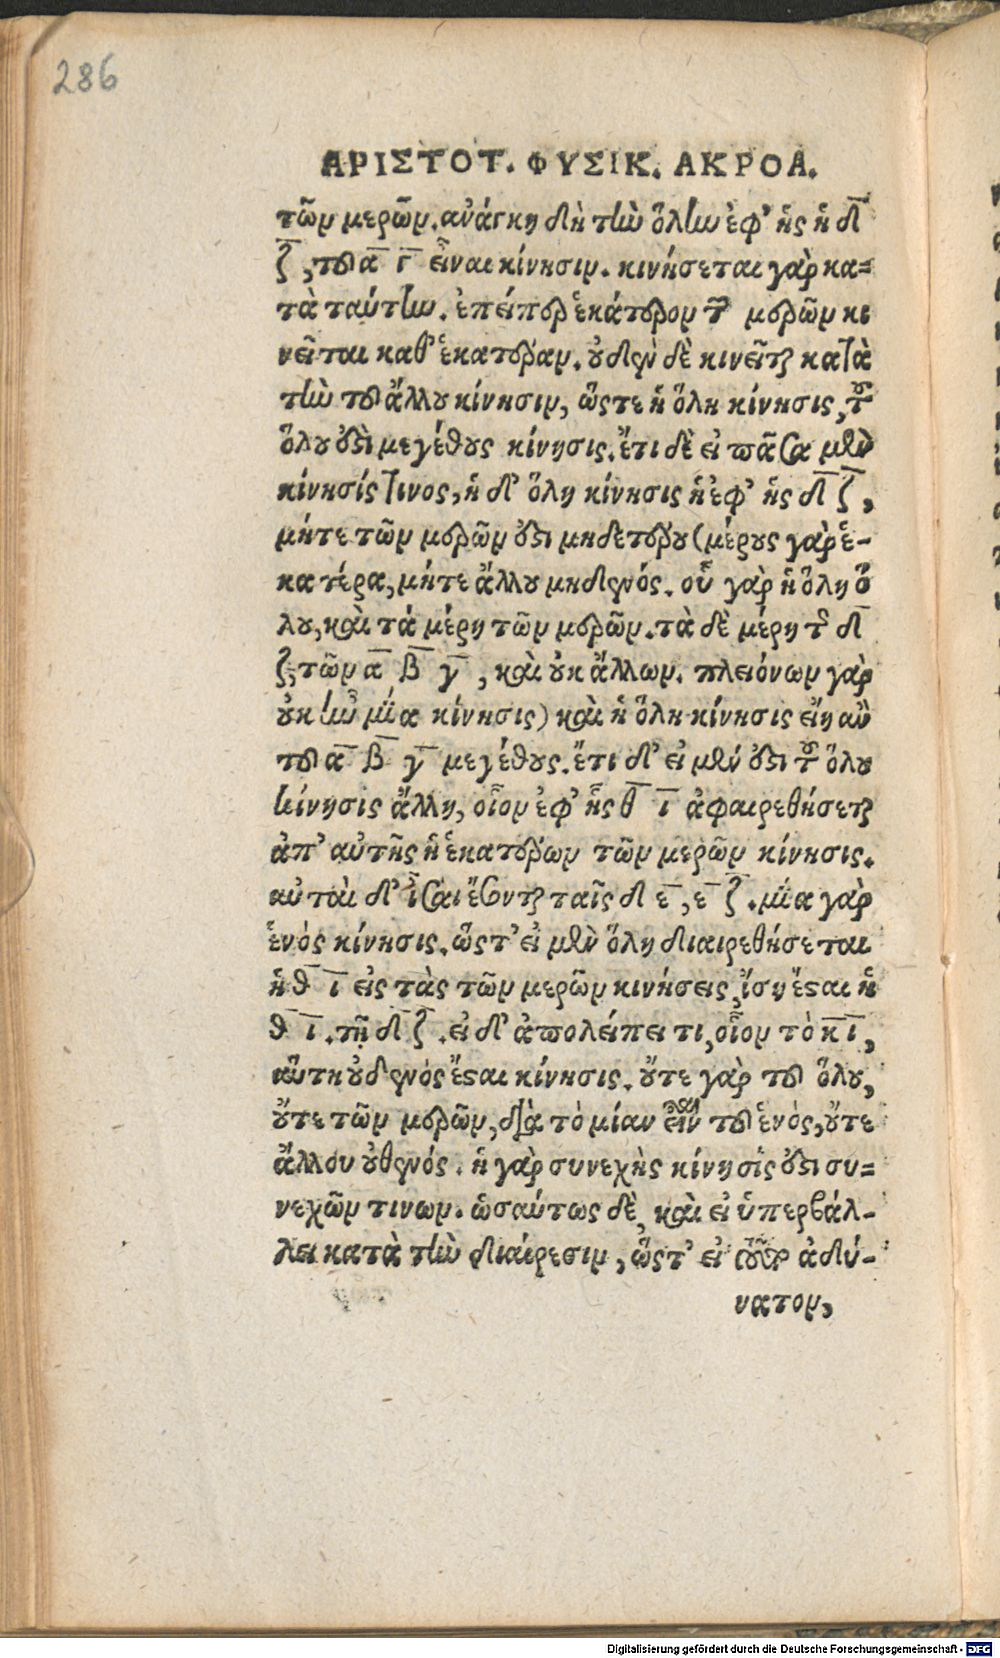 286
ΑΡΙΣΤΟΤ. ΦΥΣΙΚ. ΑΚΡΟΑ.
τῶν μερῶν. ἀνάγκη δὴ τὴν ὅλην ἐφ' ἧς ἡ δ̅
ζ̅, τοῦ α̅ γ̅ εἶναι κίνησιν. κινήσεται γὰρ κα=
τὰ ταύτην. ἐπείπερ ἑκάτερον τῶν μερῶν κι
νεῖται καθ' ἑκατέραν. οὐδὲν δὲ κινεῖται κατὰ
τὴν τοῦ ἄλλου κίνησιν, ὥστε ἡ ὅλη κίνησις, τοῦ
ὅλου ἐστὶ μεγέθους κίνησις. ἔτι δὲ εἰ πᾶσα μὲν
κίνησίς τινος, ἡ δ' ὅλη κίνησις ἡ ἐφ' ἧς δ̅ ζ̅,
μήτε τῶν μερῶν ἐστι μηδετέρου (μέρους γὰρ ἑ-
κατέρα, μήτε ἄλλου μηδενός. οὗ γὰρ ἡ ὅλη ὅ
λου, καὶ τά μέρη τῶν μερῶν. τὰ δὲ μέρη τῆς δ̅
ζ̅, τῶν α̅ β̅ γ̅, καὶ οὐκ ἄλλων. πλειόνων γὰρ
οὐκ ἦν μία κίνησις) καὶ ἡ ὅλη κίνησις εἴη ἂν
τοῦ α̅ β̅ γ̅ μεγέθους. ἔτι δ' εἰ μέν ἐστι τοῦ ὅλου
κίνησις ἄλλη, οἷον ἐφ' ἧς θ̅ ι̅ ἀφαιρεθήσεται
ἀπ' αὐτῆς ἡ ἑκατέρων τῶν μερῶν κίνησις.
αὐταὶ δ' ἴσαι ἔσονται ταῖς δ ε̅, ε̅ ζ̅. μία γὰρ
ἑνός κίνησις. ὥστ' εἰ μὲν ὅλη διαιρεθήσεται
ἡ θ̅ ι̅ εἰς τὰς τῶν μερῶν κινήσεις, ἴση ἔσται ἡ
θ̅ ι̅. τῇ δ̅ ζ̅. εἰ δ' ἀπολείπει τι, οἷον τὸ κ̅ ι̅,
αὕτη οὐδενὸς ἔσται κίνησις. οὔτε γὰρ τοῦ ὅλου,
οὔτε τῶν μερῶν, διὰ τὸ μίαν εἶναι τοῦ ἑνός, οὔτε
ἄλλου οὐθενός. ἡ γὰρ συνεχὴς κίνησίς ἐστι συ=
νεχῶν τινων. ὡσαύτως δὲ, καὶ εἰ ὑπερβάλ-
λει κατὰ τὴν διαίρεσιν, ὥστ' εἰ τοῦτο ἀδύ-
νατον,
Digitalisierung gefördert durch die Deutsche Forschungsgemeinschaft - DFG